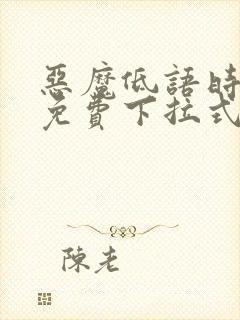 惡魔低語時
免費下拉式
陳老